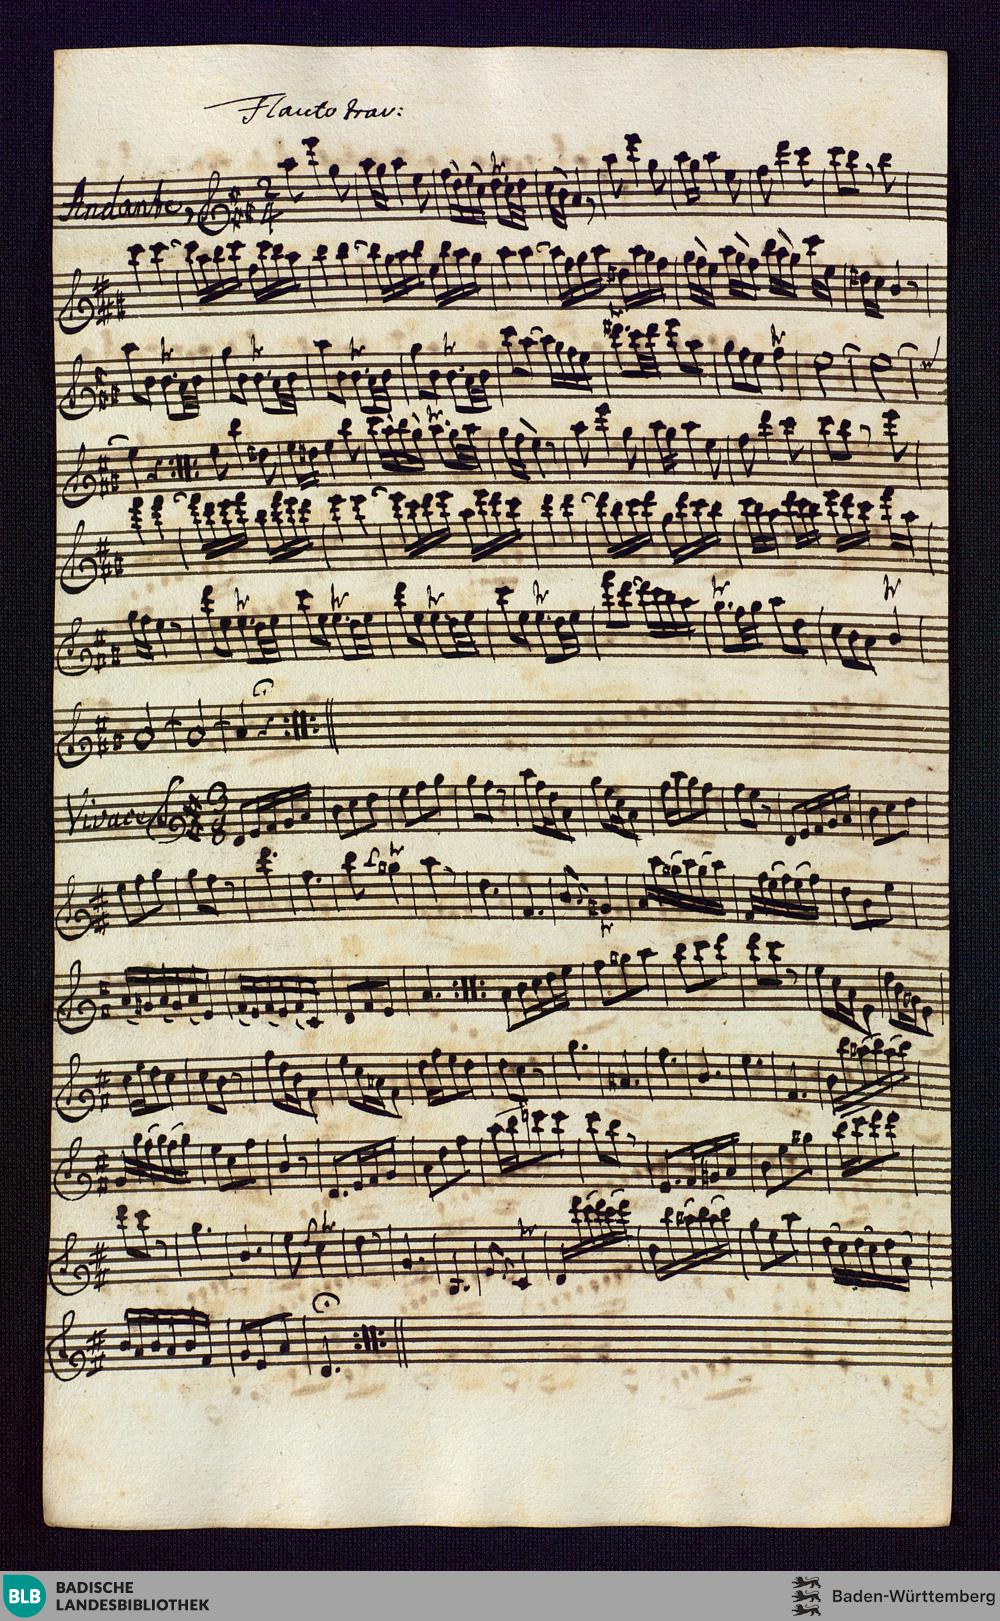 Flauto trav:
Andante,
2
4
Vivace
3
8
BLB
BADISCHE
LANDESBIBLIOTHEK
Baden-Württemberg